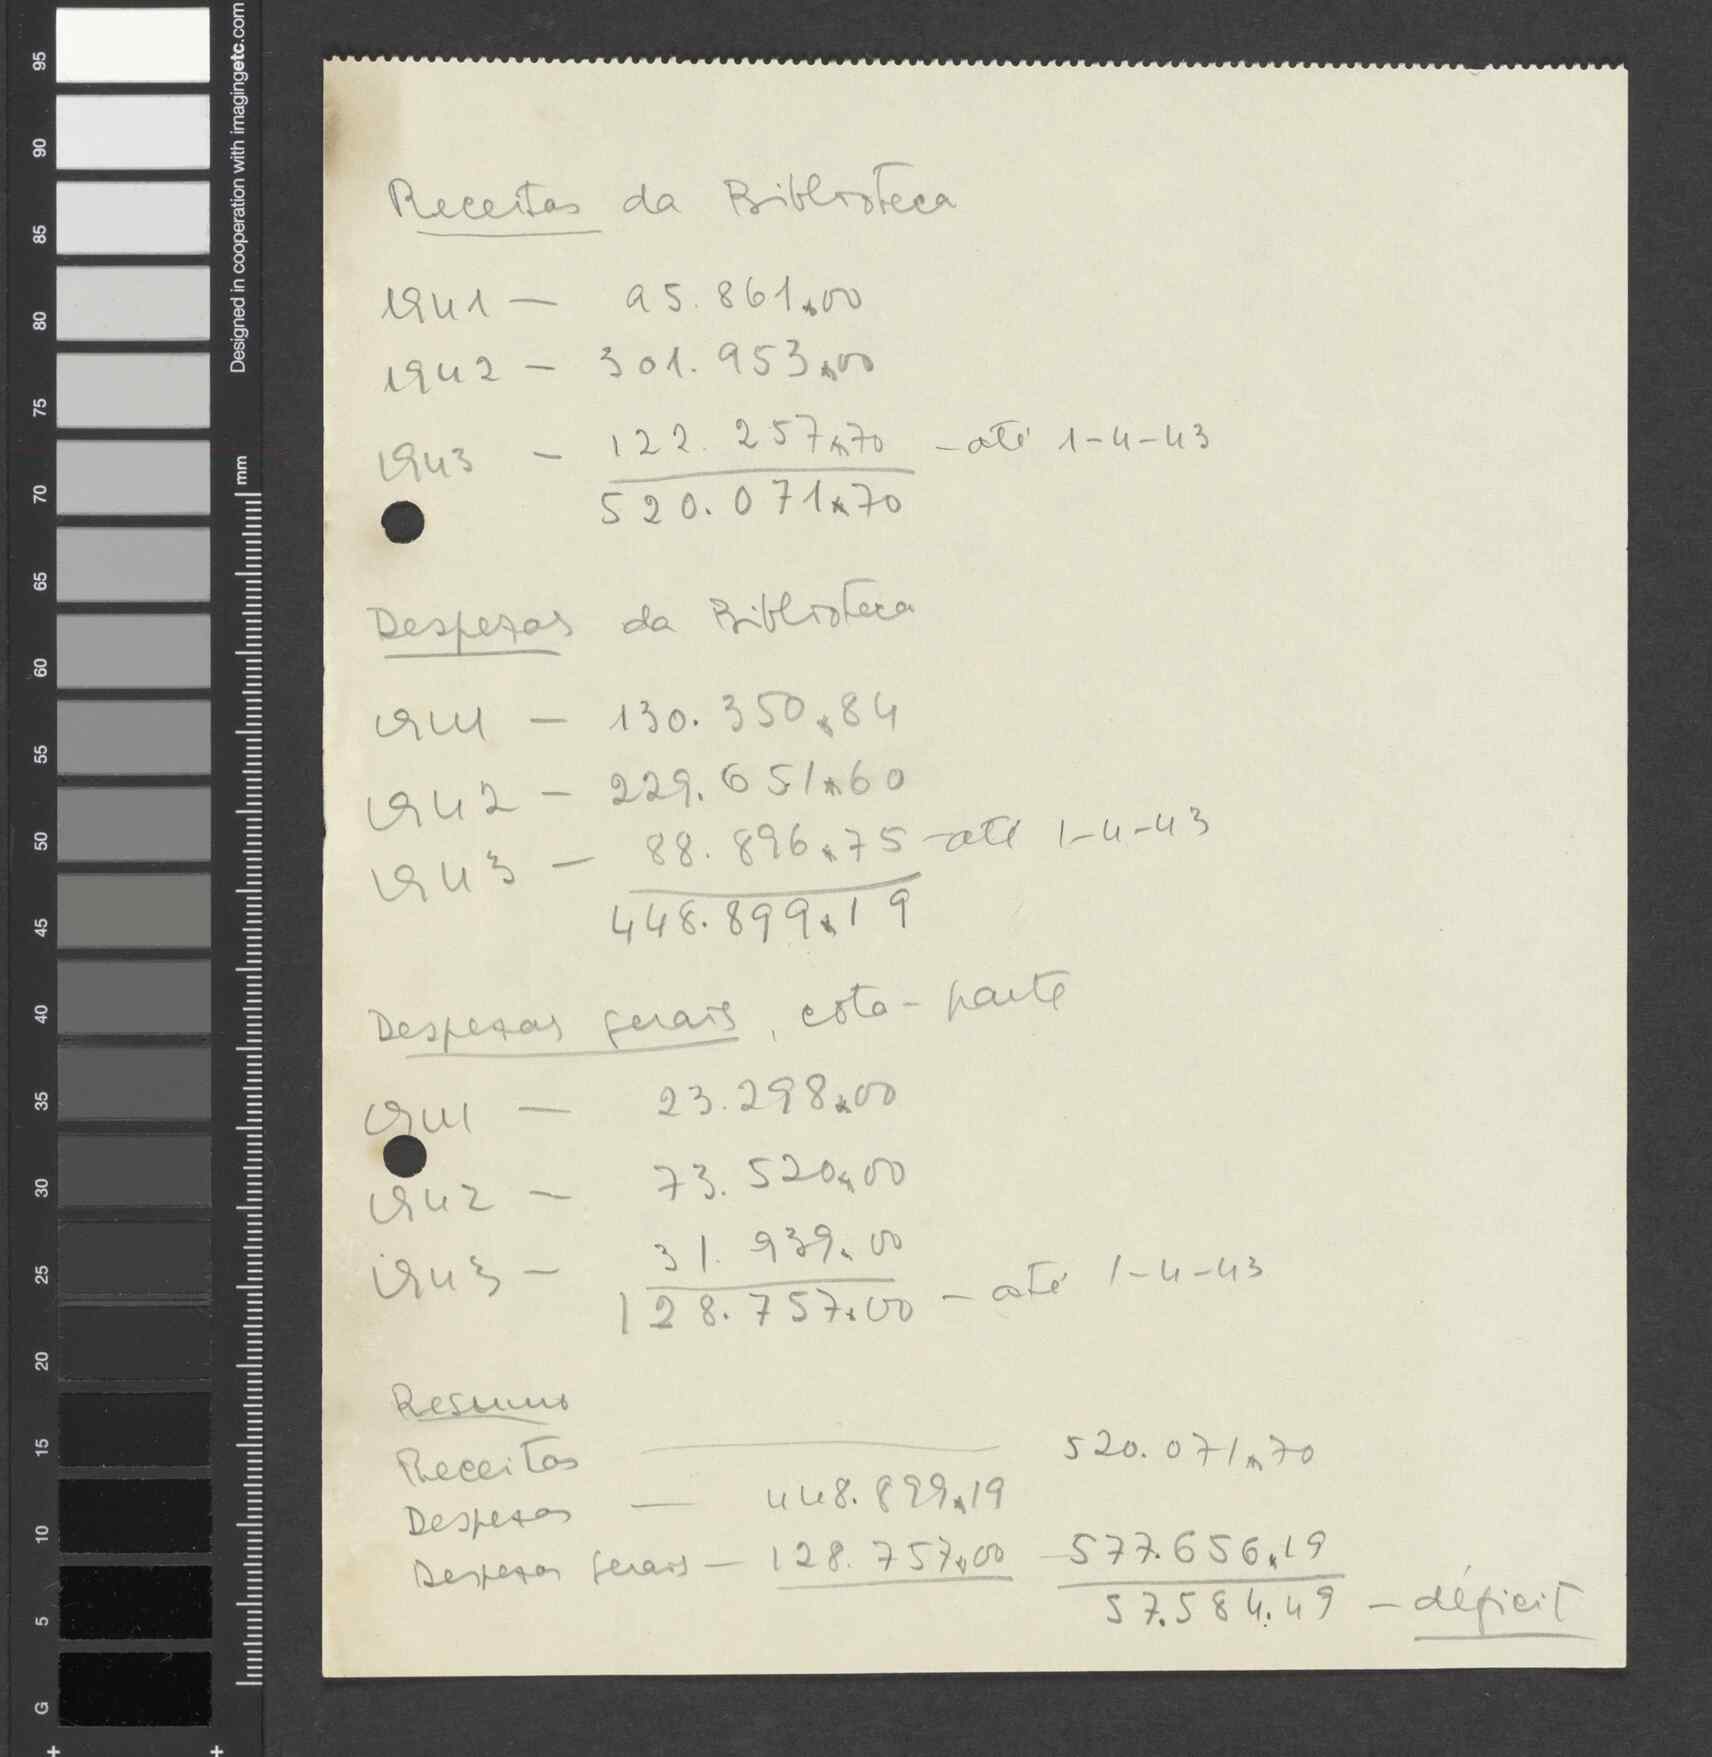 Receitas da Biblioteca
1941 — 95.861,00
1942 — 301.953,00
1943 — 122.257,70 — até 1-4-43
520.071,70
Despezas da Biblioteca
1941 — 130.350,84
1942 — 229.651,60
1943 — 88.896,75 — até 1-4-43
448.899,19
Despezas gerais, cota-parte
1941 — 23.298,00
1942 — 73.520,00
1943 — 31.939,00
128.757,00 — até 1-4-43
Resumo
Receitas — 520.071,70
Despezas — 448.899,19
Despezas gerais — 128.757,00 577.656,19
57.584,49 — déficit
Designed in cooperation with imagingetc.com
mm
95
90
85
80
75
70
65
60
55
50
45
40
35
30
25
20
15
10
5
G